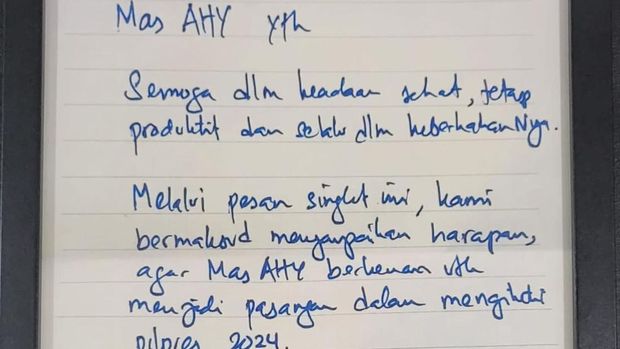 Mas AHY Yth
Semoga dlm keadaan sehat, tetap
produktif dan selalu dlm keberkahanNya.
Melalui pesan singkat ini, kami
bermaksud menyampaikan harapan,
agar Mas AHY berkenan utk
menjadi pasangan dalam mengikuti
pilpres 2024.